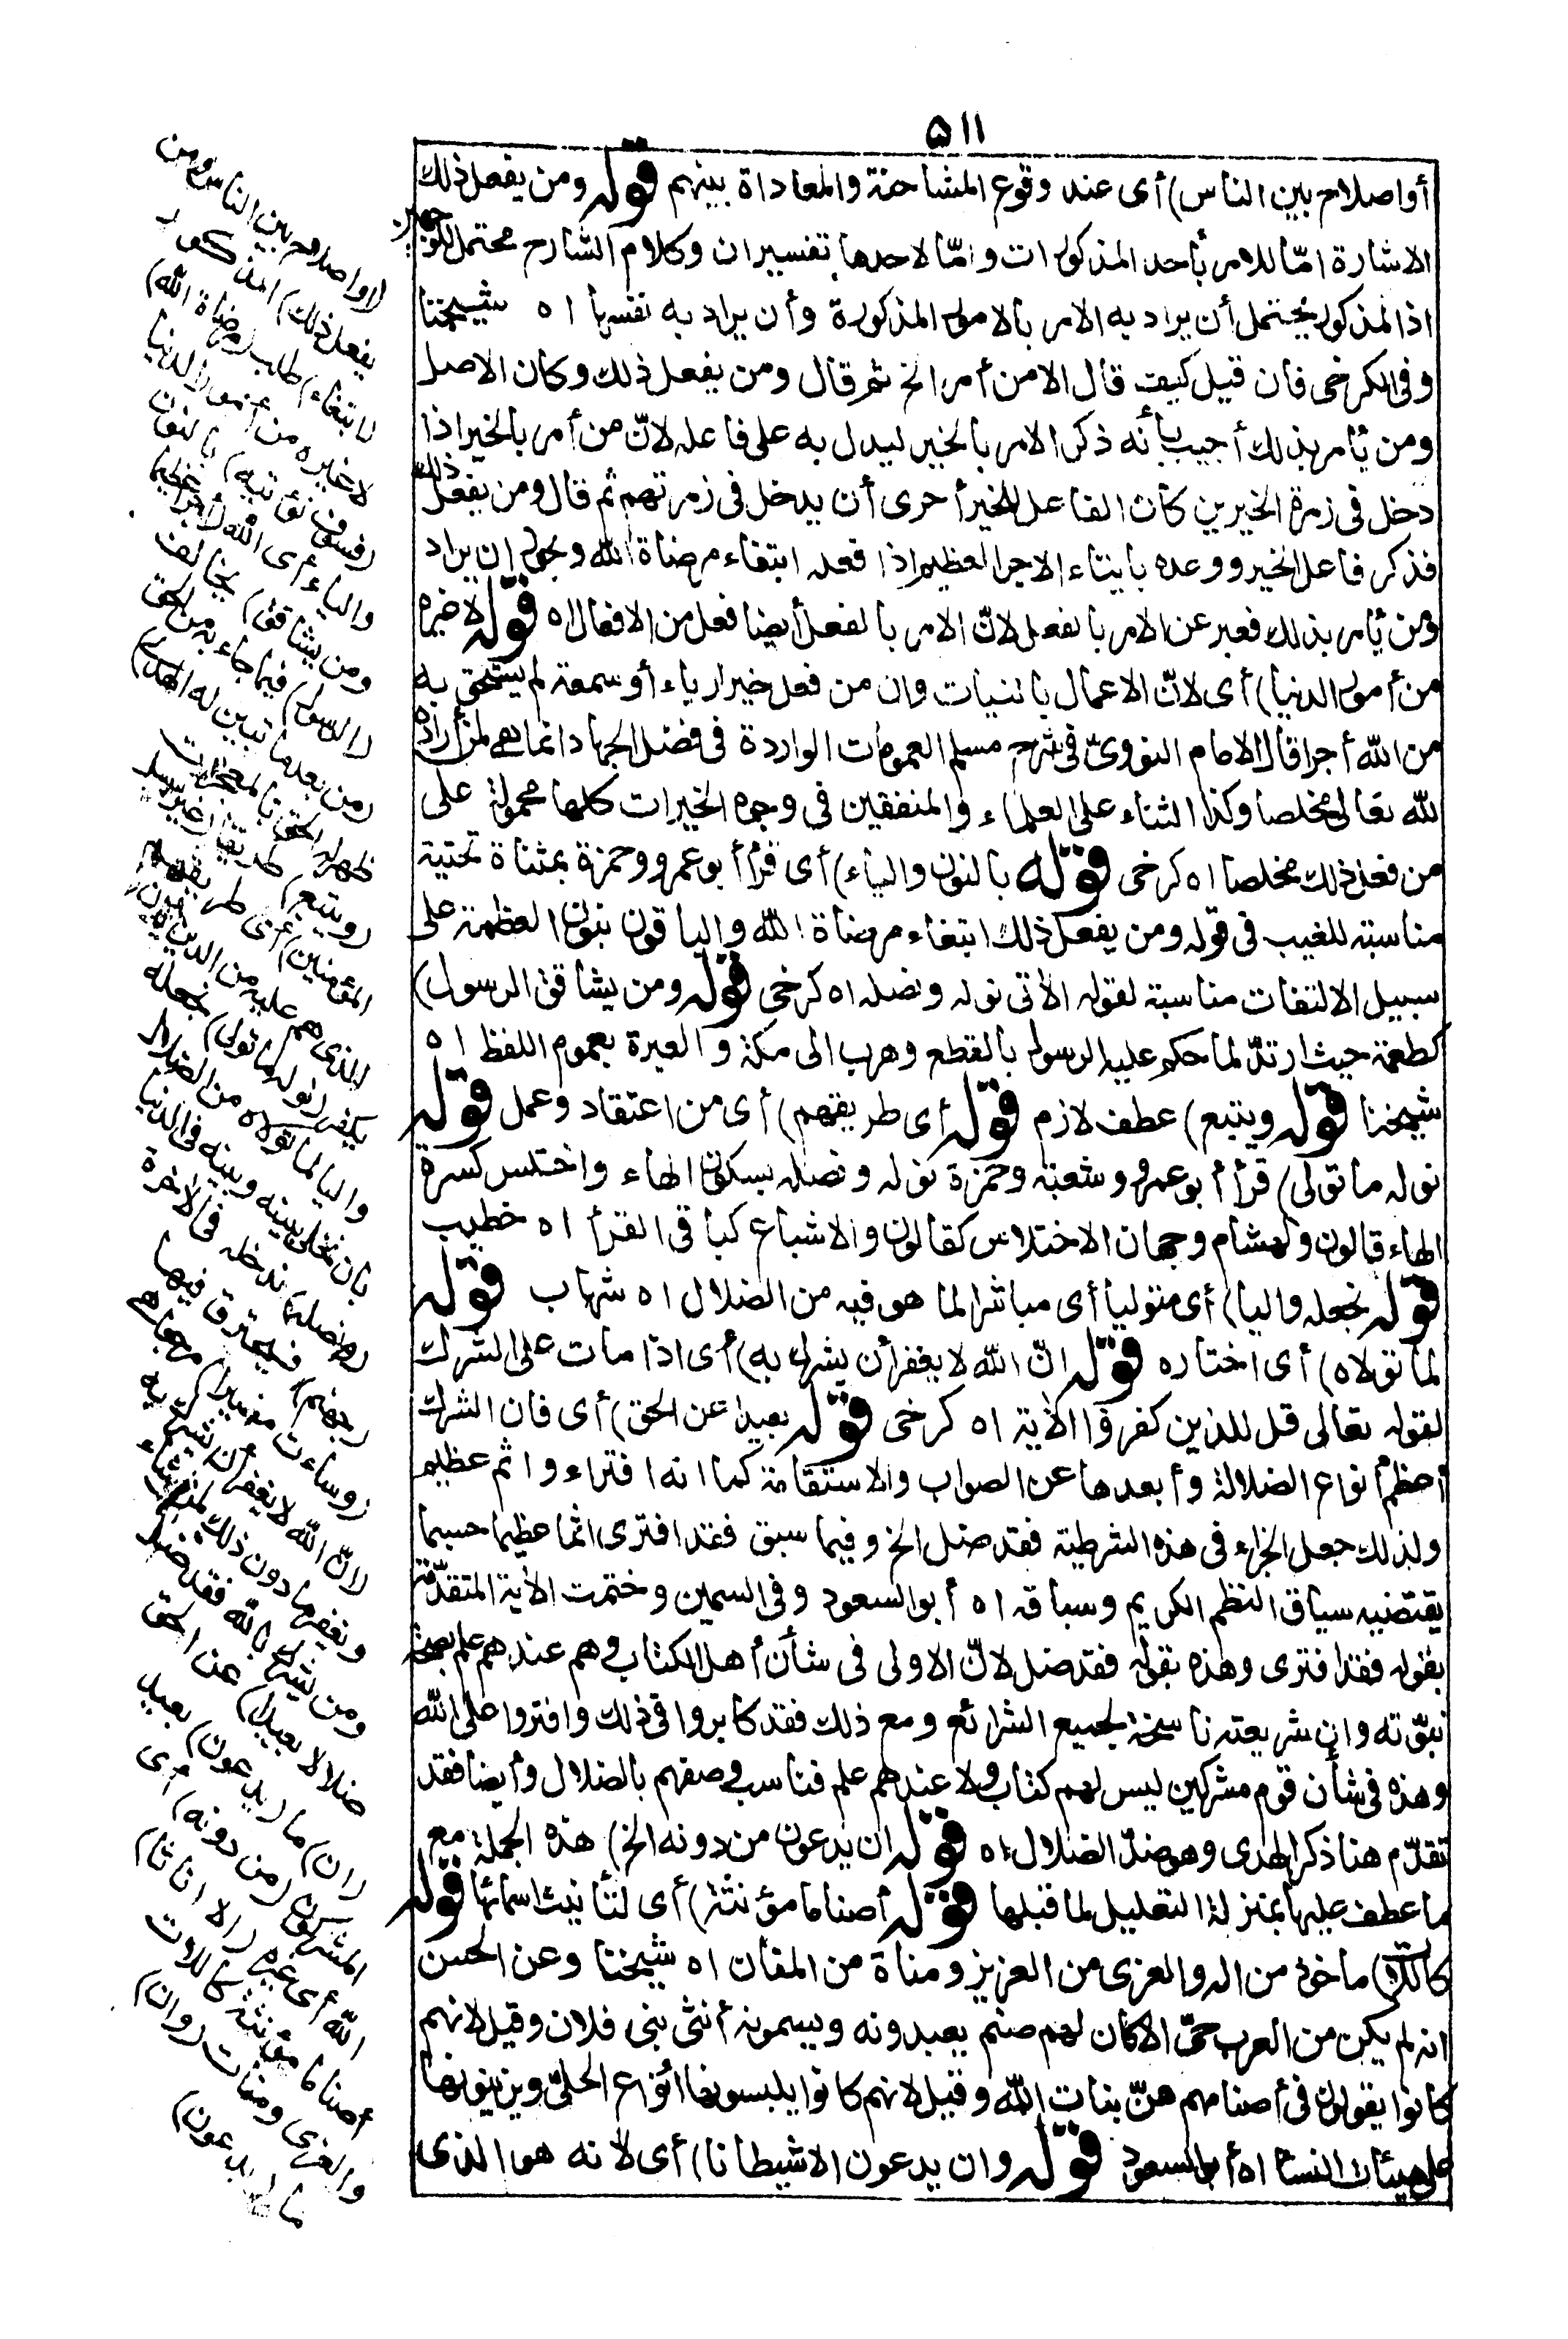 ٥١١
أواصلاح بين الناس) أى عند وقوع المشاحنة والمعاداة بينهم قوله ومن يفعل ذلك
الاشارة امّا للامر بأحد المذكورات وامّا لاحدها تفسيران وكلام الشارح محتمل للوجهين
اذ المذكور يحتمل أن يراد به الامر بالامور المذكورة وأن يراد به نفسها اه شيخنا
وفى الكرخى فان قيل كيف قال الا من أمر الخ ثم قال ومن يفعل ذلك وكان الاصل
ومن يأمر بذلك أجيب بأنه ذكر الامر بالخير ليدل به على فاعله لانّ من أمر بالخير اذا
دخل فى زمرة الخيرين كان الفاعل للخير أحرى أن يدخل فى زمرتهم ثم قال ومن يفعل ذلك
فذكر فاعل الخير ووعده بايتاء الاجر العظيم اذا فعله ابتغاء مرضاة الله ويجوز ان يراد
ومن يأمر بذلك فعبر عن الامر بالفعل لانّ الامر بالفعل أيضا فعل من الافعال اه قوله لاغيره
من أمور الدنيا) أى لانّ الاعمال بالنيات وان من فعل خيرا رياء أو سمعة لم يستحق به
من الله أجرا قال الامام النووىّ فى شرح مسلم العمومات الواردة فى فضل الجهاد انما هى لمن أراده
لله تعالى مخلصا وكذا الثناء على العلماء والمنفقين فى وجوه الخيرات كلها محمولة على
من فعل ذلك مخلصا اه كرخى قوله بالنون والياء) أى قرأ أبو عمرو وحمزة بمثناة تحتية
مناسبته للغيب فى قوله ومن يفعل ذلك ابتغاء مرضاة الله والباقون بنون العظمة على
سبيل الالتفات مناسبة لقوله الآتى نوله ونصله اه كرخى قوله ومن يشاقق الرسول)
كطعمة حيث ارتدّ لما حكم عليه الرسول بالقطع وهرب الى مكة والعبرة بعموم اللفظ اه
شيخنا قوله ويتبع) عطف لازم قوله أى طريقهم) أى من اعتقاد وعمل قوله
نوله ما تولى) قرأ أبو عمرو وشعبة وحمزة نوله ونصله بسكون الهاء واختلس كسرة
الهاء قالون ولهشام وجهان الاختلاس كقالون والاشباع كباقى القرأ اه خطيب
قوله نجعله واليا) أى متوليا أى مباشرا لما هو فيه من الضلال اه شهاب قوله
لما تولاه) أى اختاره قوله انّ الله لا يغفر أن يشرك به) أى اذا مات على الشرك
لقوله تعالى قل للذين كفروا الآية اه كرخى قوله بعيدا عن الحق) أى فان الشرك
أعظم أنواع الضلالة وأبعدها عن الصواب والاستقامة كما انه افتراء واثم عظيم
ولذلك جعل الجزاء فى هذه الشرطية فقد ضل الخ وفيما سبق فقد افترى اثما عظيما حسبما
يقتضيه سياق النظم الكريم وسباقه اه أبو السعود وفى السمين وختمت الآية المتقدّمة
بقوله فقد افترى وهذه بقوله فقد ضل لانّ الاولى فى شأن أهل الكتاب وهم عندهم علم بصحة
نبوّته وان شريعته ناسخة لجميع الشرائع ومع ذلك فقد كابروا فى ذلك وافتروا على الله
وهذه فى شأن قوم مشركين ليس لهم كتاب ولا عندهم علم فناسب وصفهم بالضلال وأيضا فقد
تقدّم هنا ذكر الهدى وهو ضدّ الضلال اه قوله ان يدعون من دونه الخ) هذه الجملة مع
ما عطف عليها بمنزلة التعليل لما قبلها قوله أصناما مؤنثة) أى لتأنيث اسمائها قوله
كاللات) ماخوذ من اله والعزى من العزيز ومناة من المنان اه شيخنا وعن الحسن
انه لم يكن من العرب حىّ الا كان لهم صنم يعبدونه ويسمونه أنثى بنى فلان وقيل لانهم
كانوا يقولون فى أصنامهم هنّ بنات الله وقيل لانهم كانوا يلبسونها أنواع الحلىّ ويزينونها
على هيئات النسا اه أبو السعود قوله وان يدعون الا شيطانا) أى لانه هو الذى
(او اصلاح بين الناس ومن
يفعل ذلك) المذكور
(ابتغاء) طلب (مرضاة الله)
لا غيره من أمور الدنيا
(فسوف نؤتيه) بالنون
والياء أى الله (أجرا عظيما
ومن يشاقق) يخالف
(الرسول) فيما جاء به من الحق
(من بعد ما تبين له الهدى)
ظهر له الحق بالمعجزات
(ويتبع) طريقا (غير سبيل
المؤمنين) أى طريقهم
الذى هم عليه من الدين بأن
يكفر (نوله ما تولى) نجعله
واليا لما تولاه من الضلال
بان نخلى بينه وبينه فى الدنيا
(ونصله) ندخله فى الآخرة
(جهنم) فيحترق فيها
(وساءت مصيرا) مرجعا هى
(انّ الله لا يغفر أن يشرك به
ويغفر ما دون ذلك لمن يشاء
ومن يشرك بالله فقد ضل
ضلالا بعيدا) عن الحق
(ان) ما (يدعون) يعبد
المشركون (من دونه) أى
الله أى غيره (الا اناثا)
أصناما مؤنثة كاللات
والعزى ومنات (وان)
ما (يدعون)